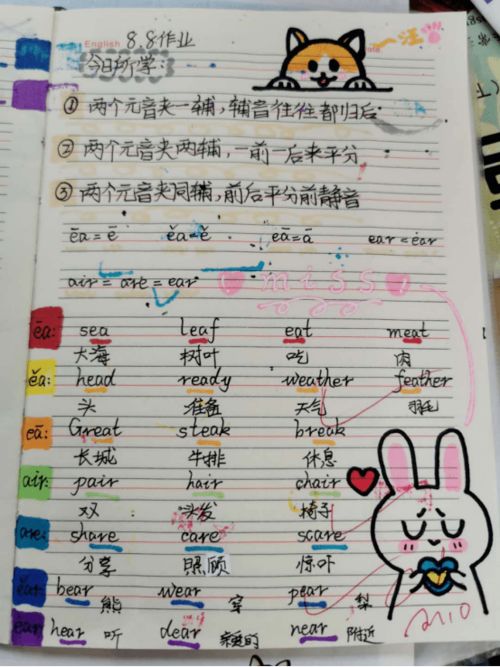 English 8.8作业 一汪
今日所学:
① 两个元音夹一辅,辅音往往都归后
② 两个元音夹两辅,一前一后来平分
③ 两个元音夹同辅,前后平分前静音
ēa=ē ĕa=ĕ eā=ā ear=ear
air=are=ear miss
ēa: sea leaf eat meat
大海 树叶 吃 肉
ĕa: head ready weather feather
头 准备 天气 羽毛
eā: Great steak break
长城 牛排 休息
air: pair hair chair
双 头发 椅子
are: share care scare
分享 照顾 惊吓
ear: bear 熊 wear 穿 pear 梨
ear: hear 听 dear 亲爱的 near 附近